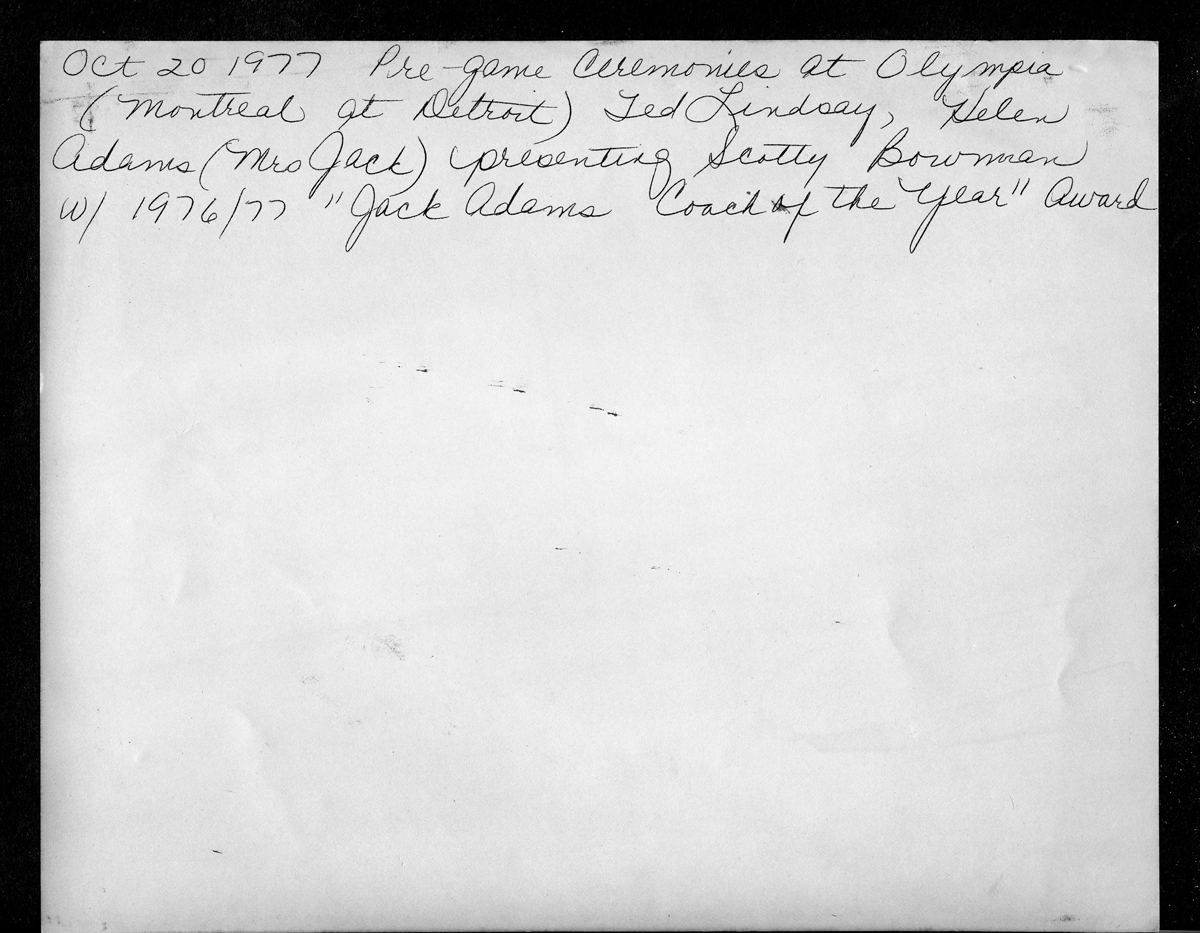 Oct 20 1977 Pre-game Ceremonies at Olympia
(Montreal at Detroit) Ted Lindsay, Helen
Adams (Mrs Jack) presenting Scotty Bowman
w/ 1976/77 "Jack Adams Coach of the Year" Award